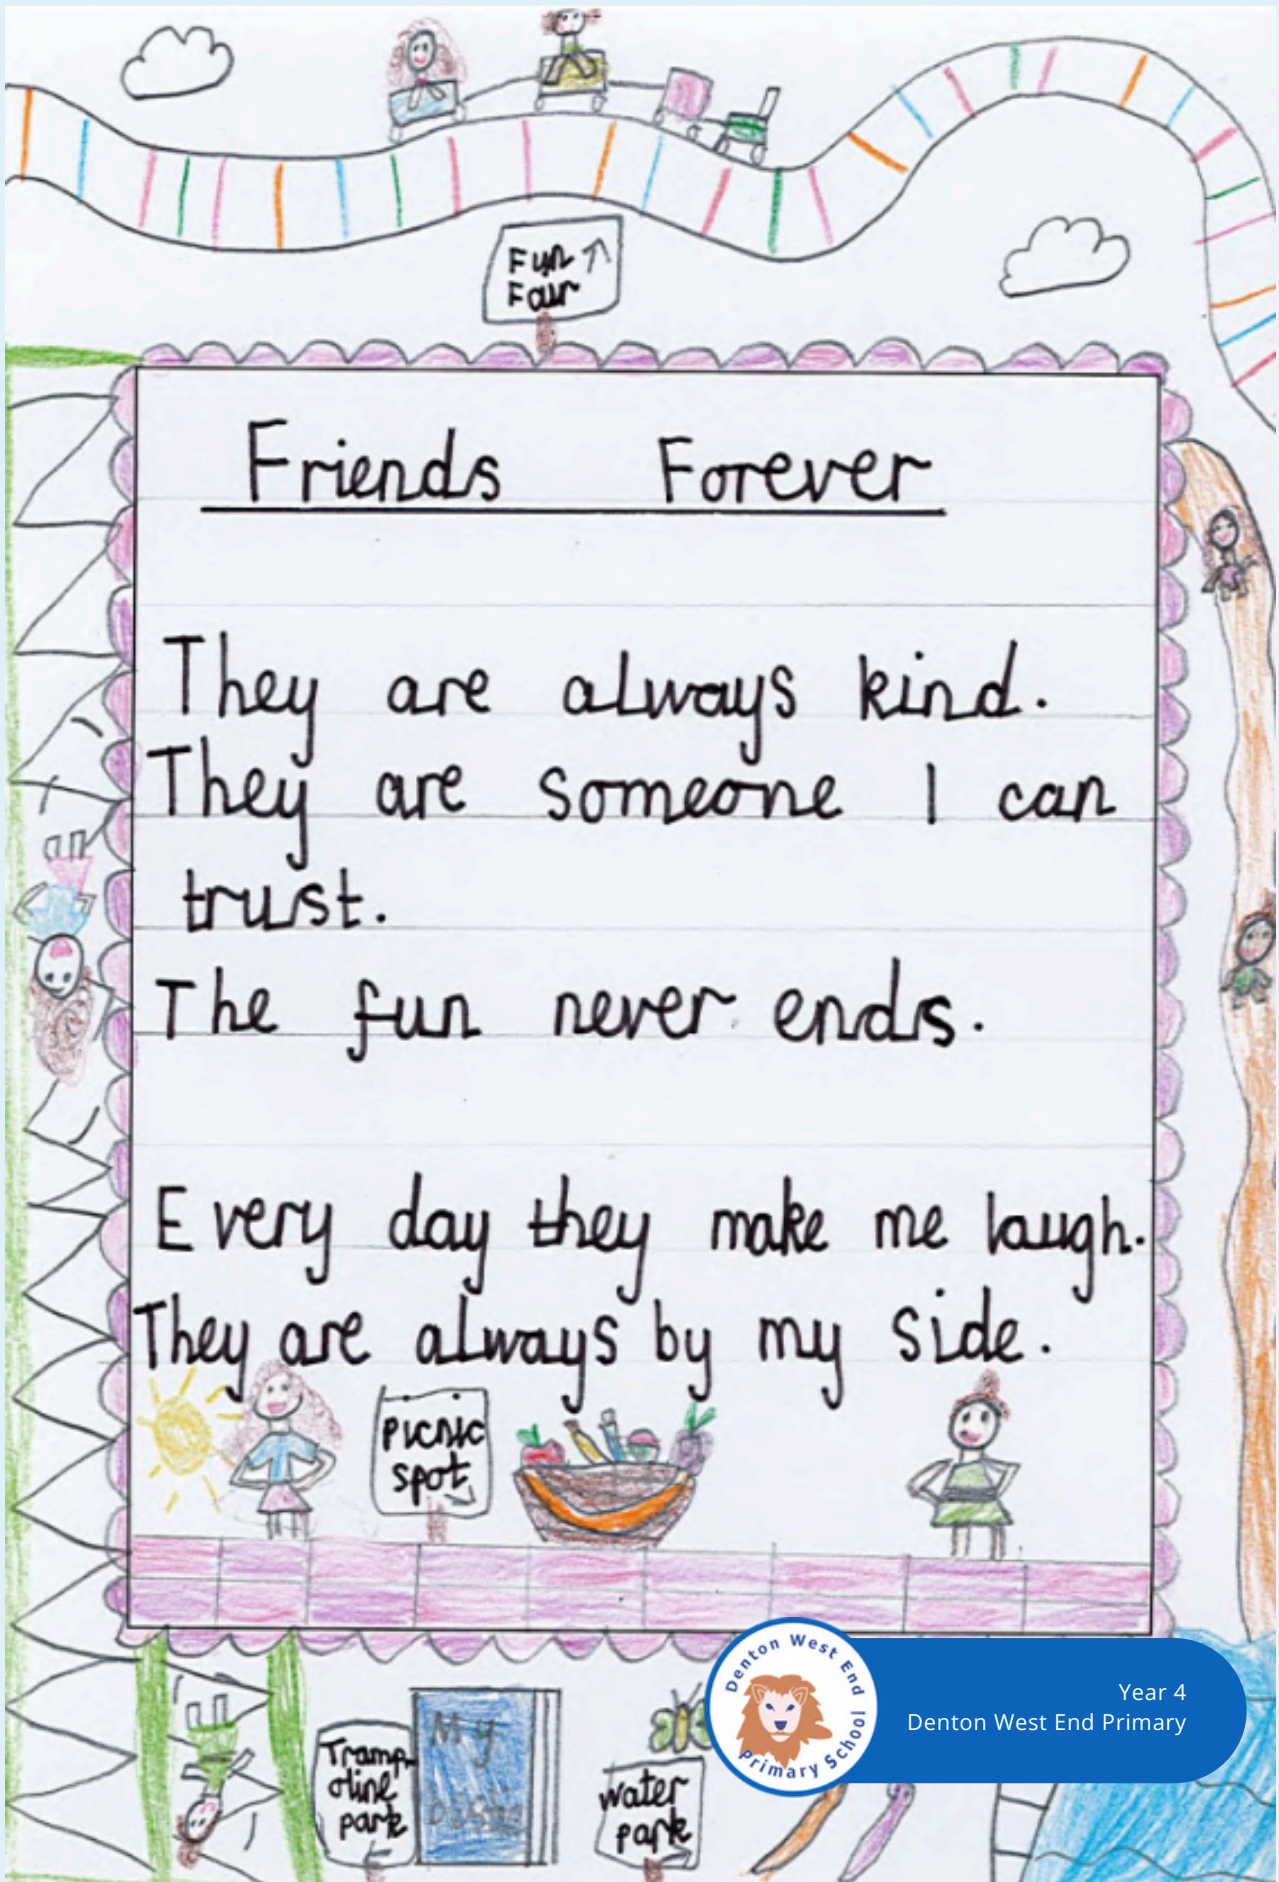 Fun
Fair
Friends Forever
They are always kind.
They are someone I can
trust.
The fun never ends.
Every day they make me laugh.
They are always by my side.
picnic
spot
Tramp
oline
park
My
water
park
Denton West End
Primary School
Year 4
Denton West End Primary